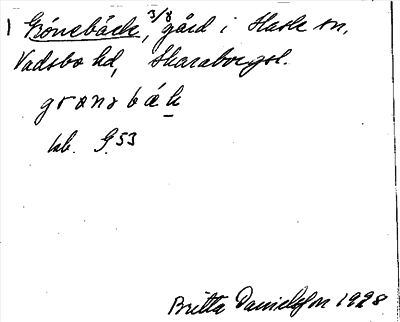 1 Grönebäck, 3/8 gård i Hasle sn,
Vadsbo hd, Skaraborgsl.
grönabäk
hb. G.53
Britta Danielsson 1928